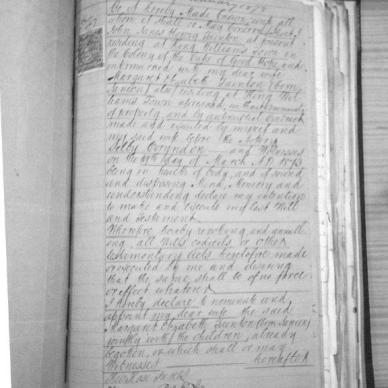 Be it hereby Made Known unto all
whom it shall or May Concern that I
John James Henry
residing at King Williams Town in
the Colony of the Cape of Good Hope and
intermarried with my dear wife
Margaret Elizabeth (born
also residing at King Wil
liams Town aforesaid, in Community
of property, and by antenuptial Contract
made and executed by myself and
my said wife before the Notary
and Witnesses
on the day of March A.D. 1873
being in health of body, and of sound
and disposing Mind, Memory and
understanding declare my intention
to make and execute my last Will
and Testament
Therefore hereby revoking and annull
ing all Wills codicils or other
testamentary Acts heretofore made
or executed by me and desiring
that the same shall be of no force
or effect whatever
I hereby declare to nominate and
appoint my dear wife the said
Margaret Elizabeth (born
jointly with the children, already
begotten, or which shall or may
Witnesses hereafter